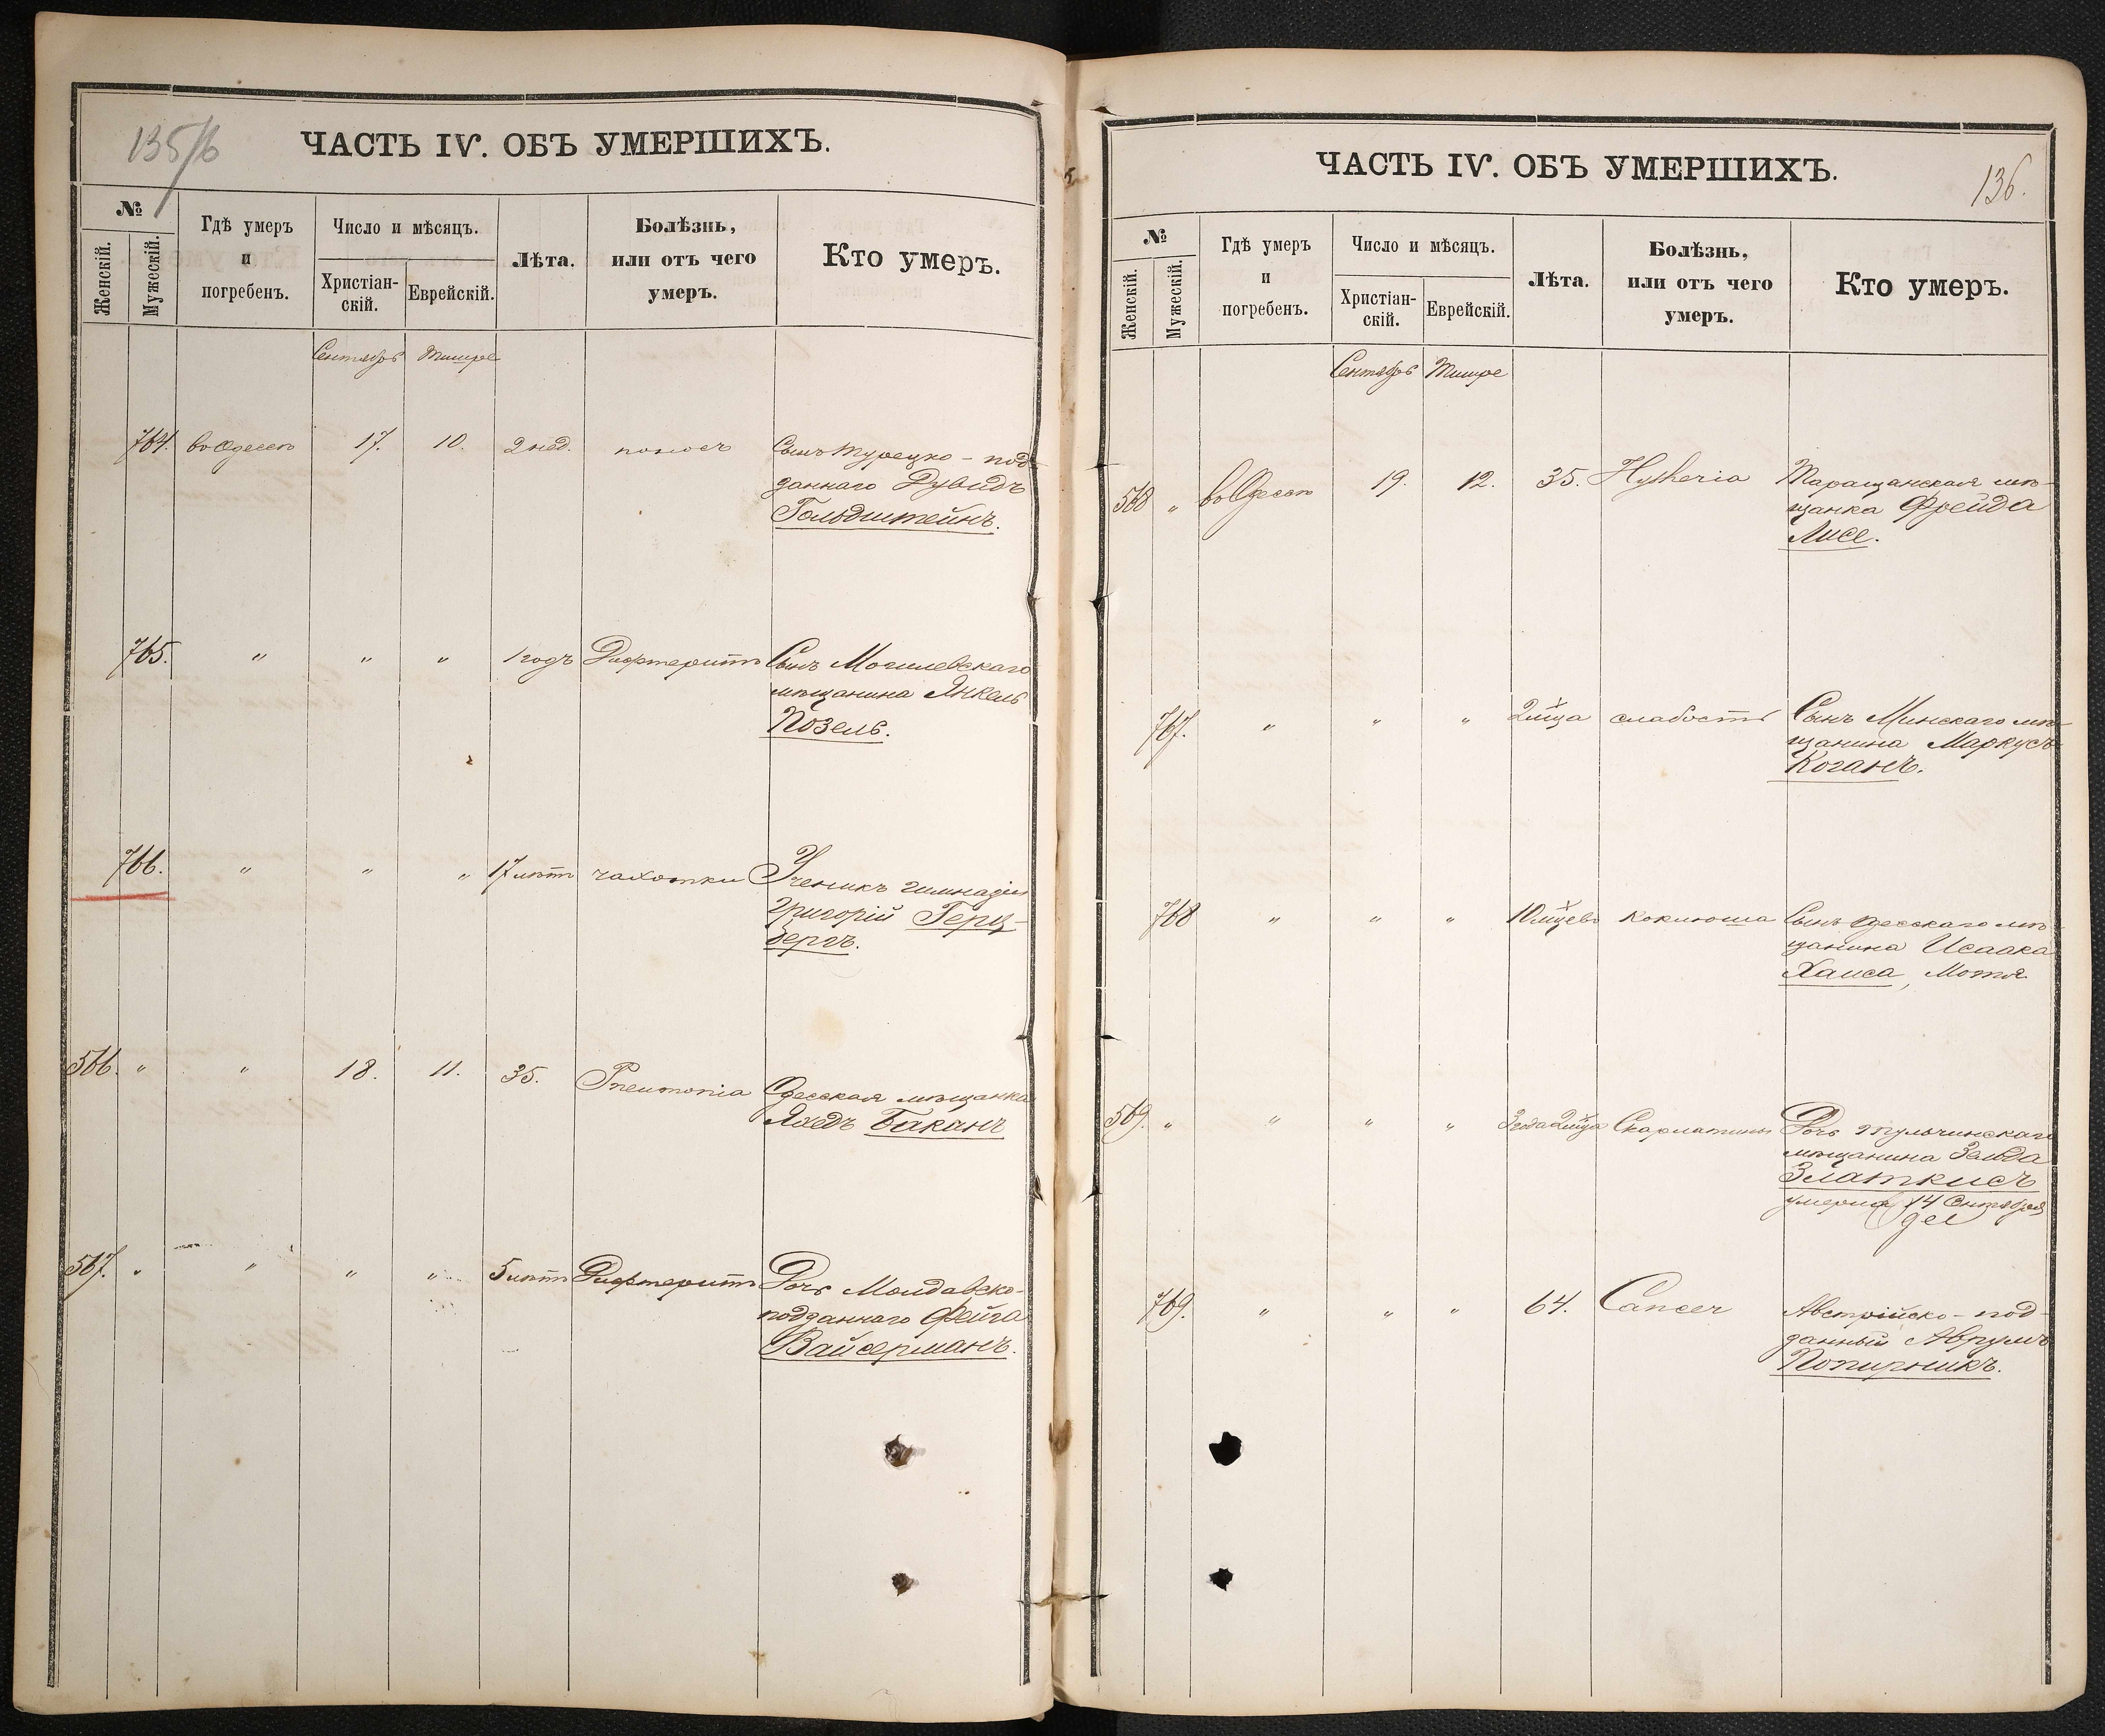 135/6
ЧАСТЬ IV. ОБЪ УМЕРШИХЪ.
№
Женскій.
Мужескій.
Гдѣ умеръ
и
погребенъ.
Число и мѣсяцъ.
Христіан-
скій.
Еврейскій.
Лѣта.
Болѣзнь,
или отъ чего
умеръ.
Кто умеръ.
Сентябрь Тишре
764. во Одессѣ 17. 10. 2 нед. поносъ Сынъ турецко-под-
даннаго Дувидъ
Гольдштейнъ.
765. " " " 1 годъ Дифтеритъ Сынъ Могилевскаго
мѣщанина Янкель
Позель.
766. " " " 17 лѣтъ чахотки Ученикъ гимназіи
Григорій Герц-
бергъ.
566. " " 18. 11. 35. Pneumonia Одесская мѣщанка
Яхедъ Баканъ
567. " " " " 5 лѣтъ Дифтеритъ Дочь Молдавско-
подданнаго Фейга
Вайсерманъ.
ЧАСТЬ IV. ОБЪ УМЕРШИХЪ.
136.
№
Женскій.
Мужескій.
Гдѣ умеръ
и
погребенъ.
Число и мѣсяцъ.
Христіан-
скій.
Еврейскій.
Лѣта.
Болѣзнь,
или отъ чего
умеръ.
Кто умеръ.
Сентябрь Тишре
568 " во Одессѣ 19. 12. 35. Таращанская мѣ-
щанка Фрейда
Лисе.
767. " " " 2 мца слабость Сынъ Минскаго мѣ-
щанина Маркусъ
Коганъ.
768 " " " 10 мцевъ коклюша Сынъ Одесскаго мѣ-
щанина Исаака
Хаиса, Мотя
569. " " " " 3 года 2 мца Скарлатины Дочь Тульчинскаго
мѣщанина Зельда
Златкисъ
умерла 14 Сентября
769. " " " 64. Cancer Австрійско-под-
данный Аврумъ
Попирникъ.